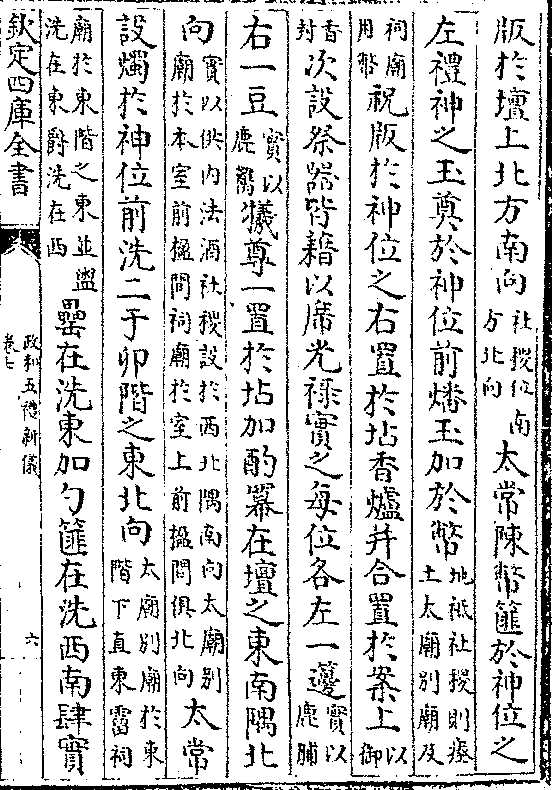 版於壇上北方南向社稷位南方北向太常陳幣篚於神位之
左禮神之玉奠於神位前燔玉加於幣地祗社稷則瘞土太廟別廟及
祠廟用幣祝版於神位之右置於坫香爐并合置於案上以御
香封次設祭器皆藉以席光祿實之每位各左一籩實以鹿脯
右一豆實以鹿臡犧尊一置於坫加酌冪在壇之東南隅北
向實以供內法酒社稷設於西北隅南向太廟別廟於本室前楹間祠廟於室上前楹間俱北向太常
設燭於神位前洗二于卯階之東北向太廟別廟於東階下直東霤祠
廟於東階之東並盥洗在東爵洗在西罍在洗東加勺篚在洗西南肆實
欽定四庫全書
政和五禮新儀
卷七
六